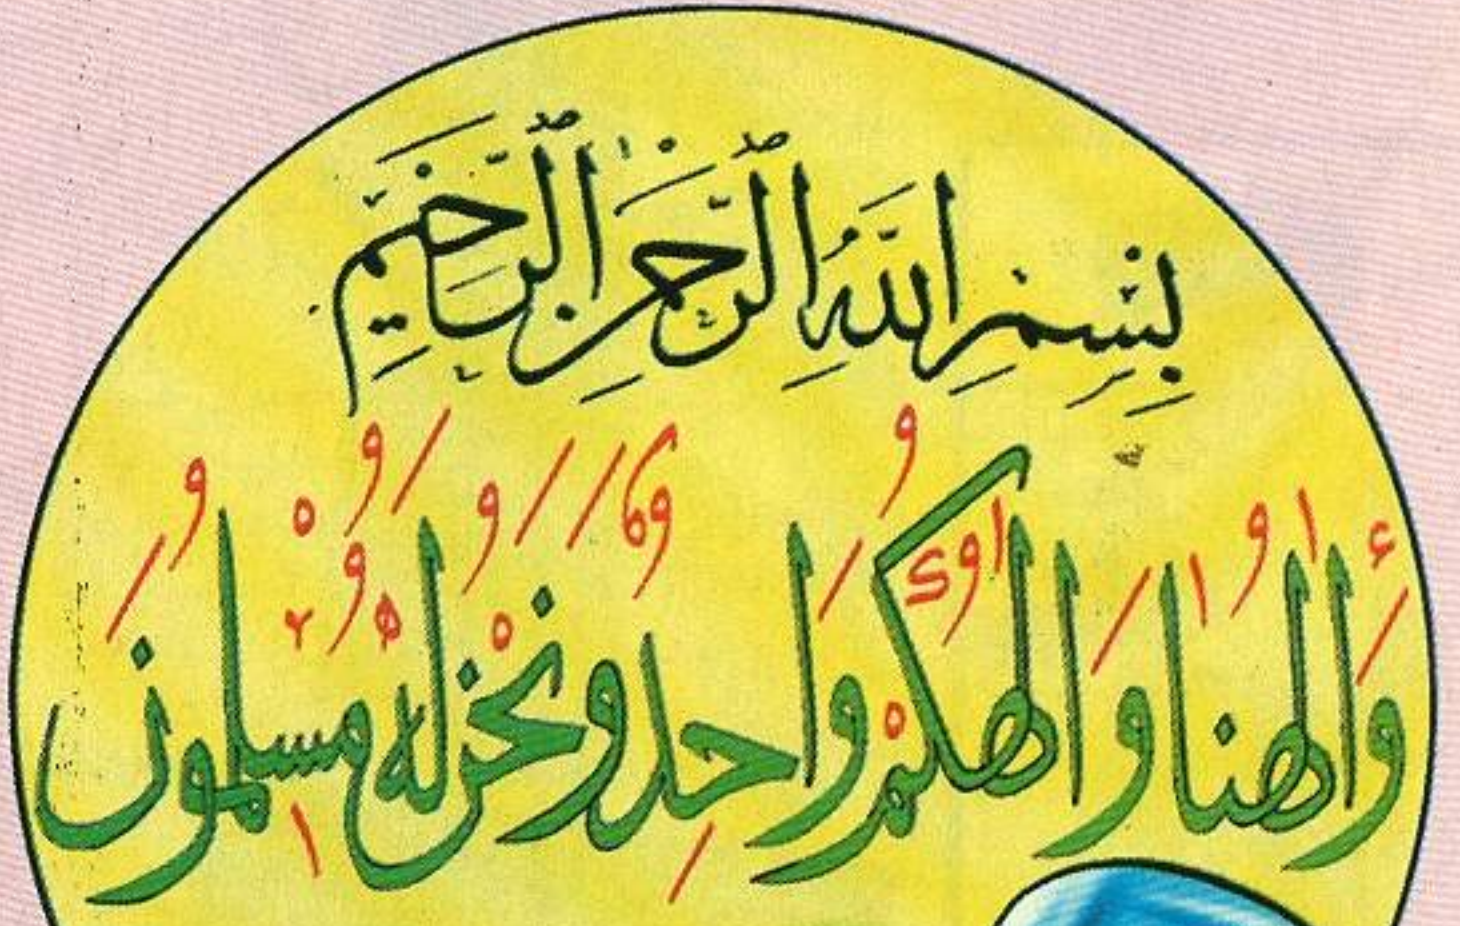 بِسْمِ اللَّهِ الرَّحْمَنِ الرَّحِيمِ
وَالهُنَا وَالهُكُمْ وَاحِدٌ وَنَحْنُ لَهُ مُسْلِمُونَ